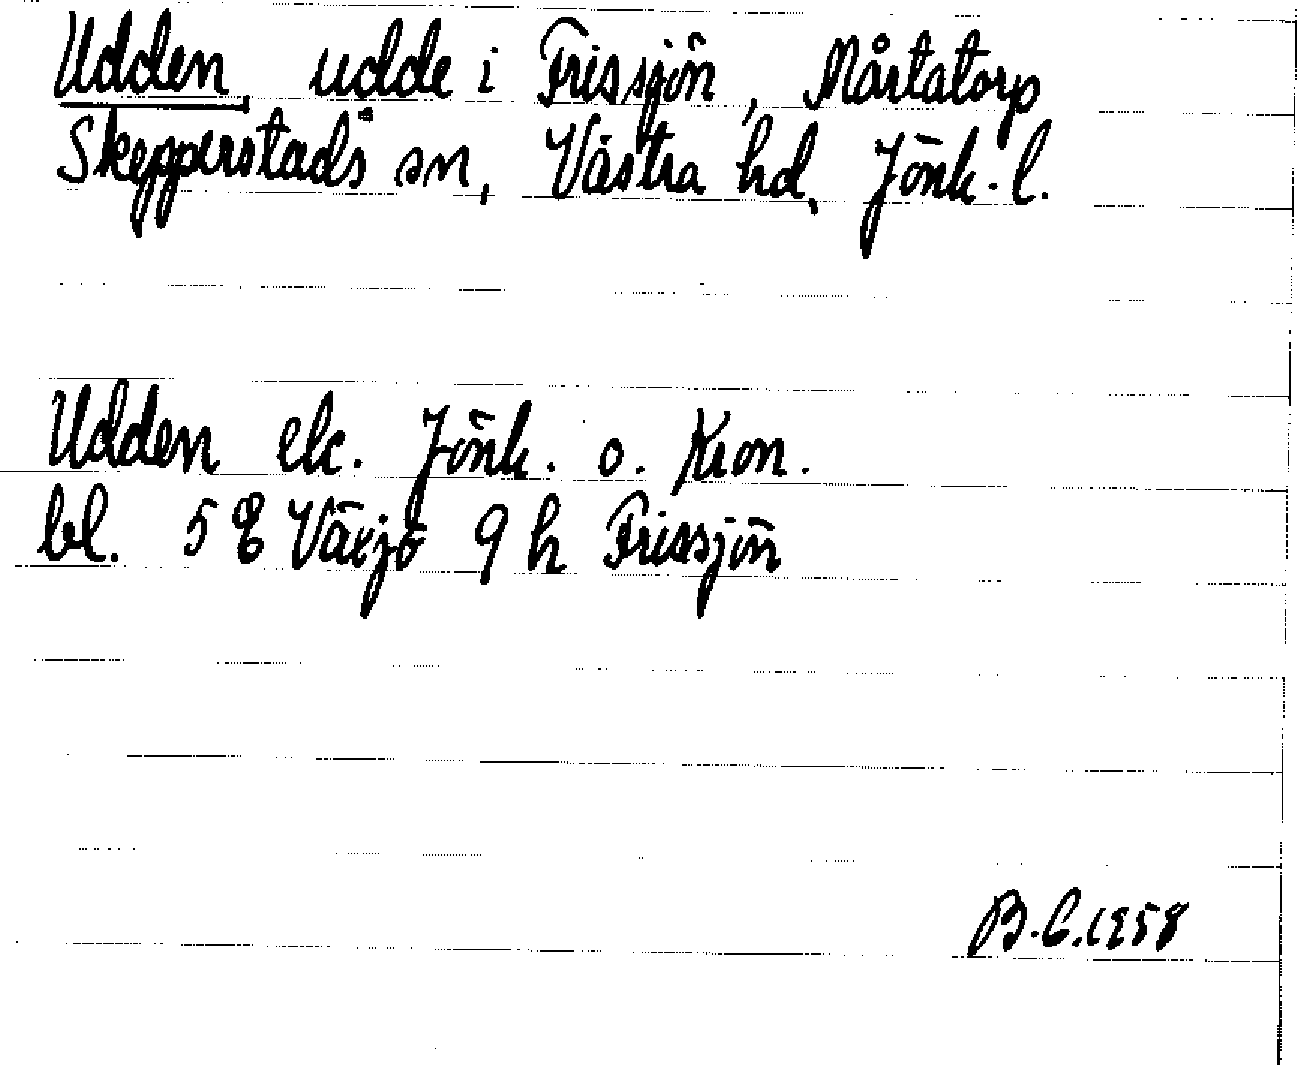 Udden, udde i Frissjön, Mårtatorp
Skepperstads sn, Västra hd, Jönk. l.
Udden ek. Jönk. o. Kron.
bl. 5 E Växjö 9 h Frissjön
B.C.1958